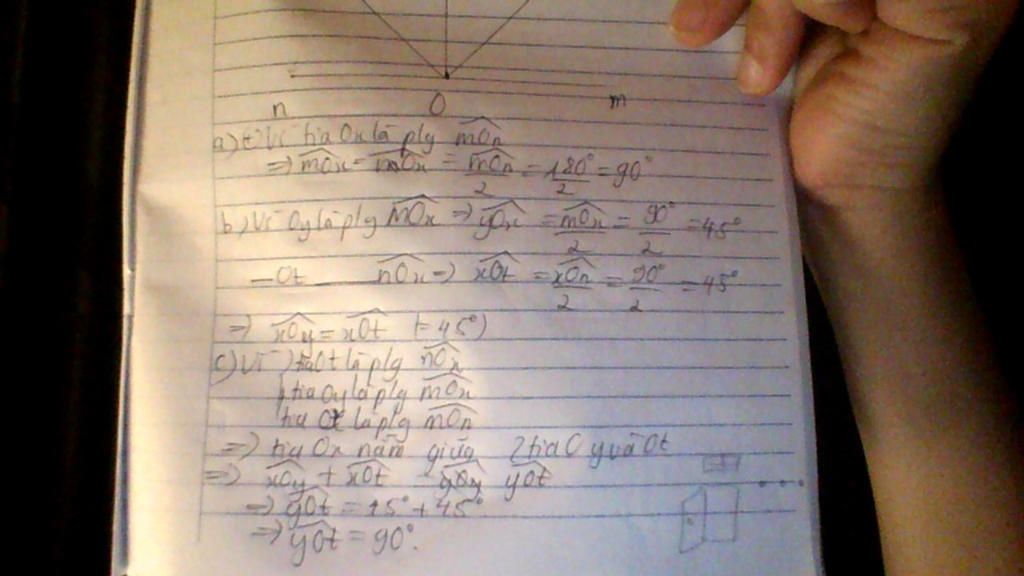 n O m
a) Vì tia Ox là plg mOn
=> mOx = nOx = mOn/2 = 180°/2 = 90°
b) Vì Oy là plg mOx => yOx = mOx/2 = 90°/2 = 45°
– Ot — nOx => xOt = xOn/2 = 90°/2 = 45°
=> xOy = xOt (= 45°)
c) Vì tia Ot là plg nOx
tia Oy là plg mOx
tia Ox là plg mOn
=> tia Ox nằm giữa 2 tia Oy và Ot
=> xOy + xOt = yOt
=> yOt = 45° + 45°
=> yOt = 90°.